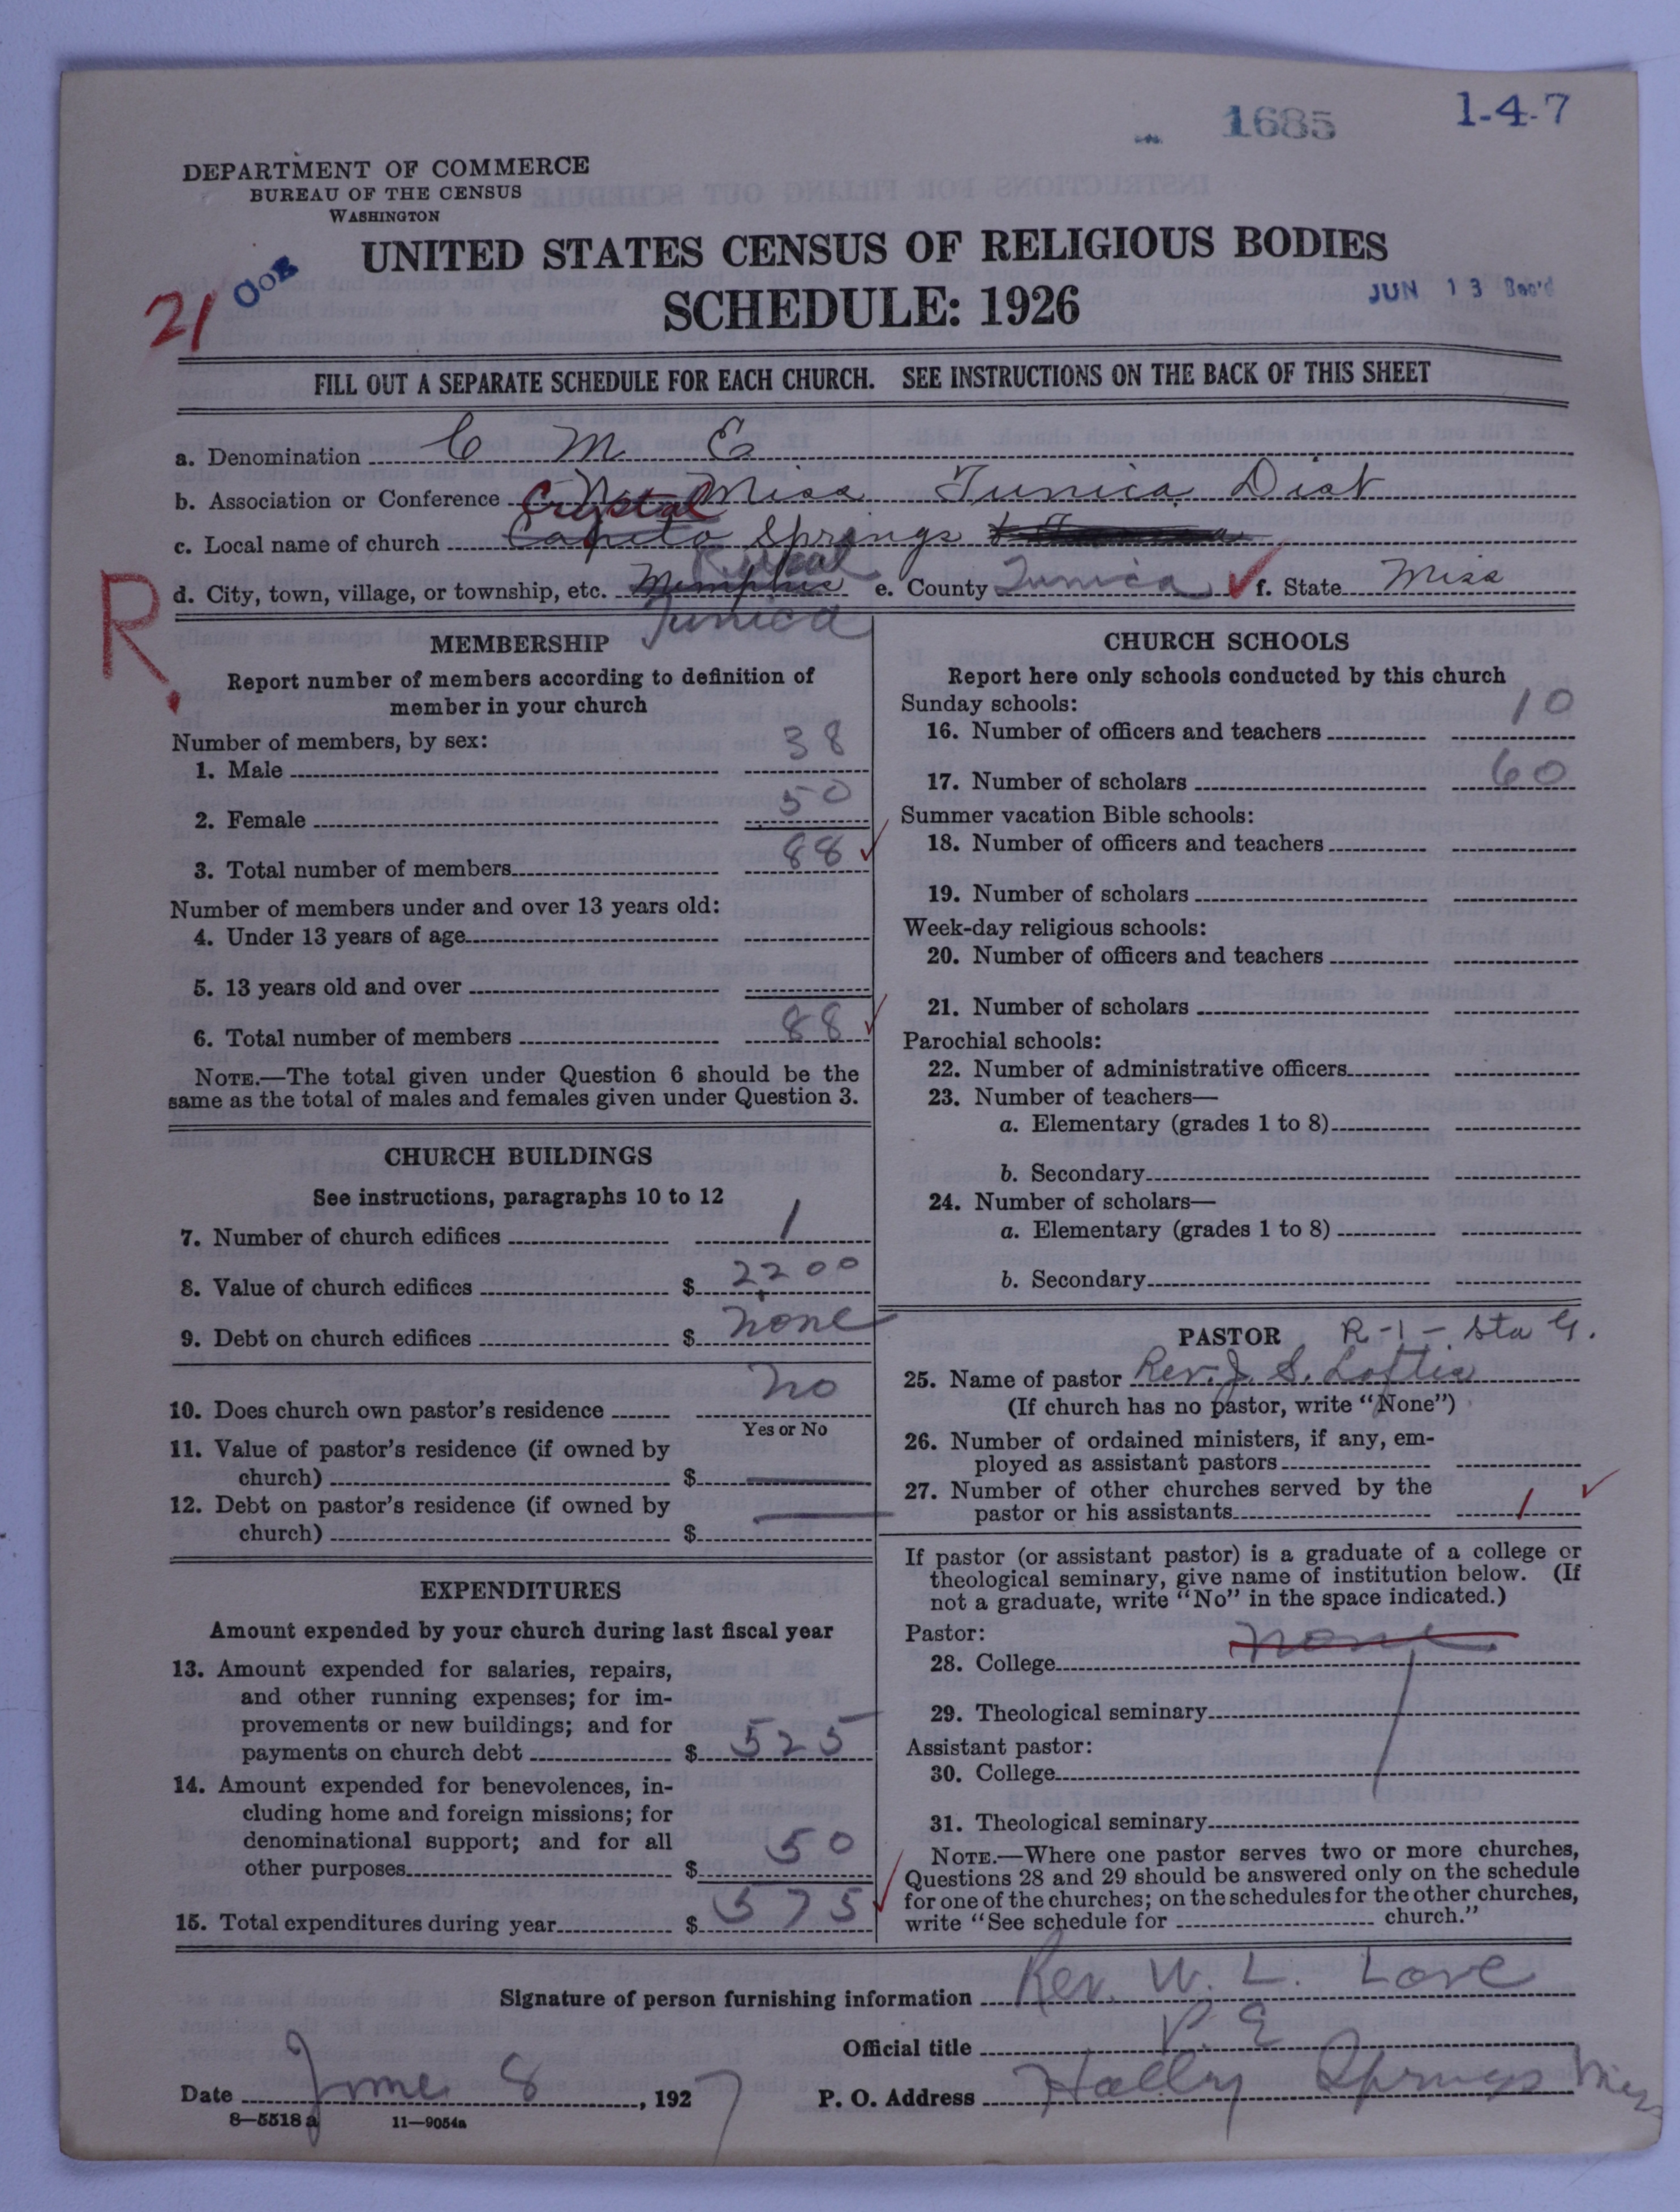 1685
1-4-7
DEPARTMENT OF COMMERCE
BUREAU OF THE CENSUS
WASHINGTON
UNITED STATES CENSUS OF RELIGIOUS BODIES
SCHEDULE: 1926
21
JUN 13 Rec'd
FILL OUT A SEPARATE SCHEDULE FOR EACH CHURCH. SEE INSTRUCTIONS ON THE BACK OF THIS SHEET
a. Denomination C M E
b. Association or Conference No Miss Tunica Dist
c. Local name of church Crystal Springs
d. City, town, village, or township, etc. Memphis Rural Tunica e. County Tunica f. State Miss
R.
MEMBERSHIP
Report number of members according to definition of
member in your church
Number of members, by sex:
1. Male 38
2. Female 50
3. Total number of members 88
Number of members under and over 13 years old:
4. Under 13 years of age
5. 13 years old and over
6. Total number of members 88
NOTE.—The total given under Question 6 should be the
same as the total of males and females given under Question 3.
CHURCH BUILDINGS
See instructions, paragraphs 10 to 12
7. Number of church edifices 1
8. Value of church edifices $ 2200
9. Debt on church edifices $ none
10. Does church own pastor's residence no
Yes or No
11. Value of pastor's residence (if owned by
church) $
12. Debt on pastor's residence (if owned by
church) $
EXPENDITURES
Amount expended by your church during last fiscal year
13. Amount expended for salaries, repairs,
and other running expenses; for im-
provements or new buildings; and for
payments on church debt $ 525
14. Amount expended for benevolences, in-
cluding home and foreign missions; for
denominational support; and for all
other purposes $ 50
15. Total expenditures during year $ 575
CHURCH SCHOOLS
Report here only schools conducted by this church
Sunday schools:
16. Number of officers and teachers 10
17. Number of scholars 60
Summer vacation Bible schools:
18. Number of officers and teachers
19. Number of scholars
Week-day religious schools:
20. Number of officers and teachers
21. Number of scholars
Parochial schools:
22. Number of administrative officers
23. Number of teachers—
a. Elementary (grades 1 to 8)
b. Secondary
24. Number of scholars—
a. Elementary (grades 1 to 8)
b. Secondary
PASTOR R-1- Sta G.
25. Name of pastor Rev. J. S. Loftis
(If church has no pastor, write "None")
26. Number of ordained ministers, if any, em-
ployed as assistant pastors
27. Number of other churches served by the
pastor or his assistants 1
If pastor (or assistant pastor) is a graduate of a college or
theological seminary, give name of institution below. (If
not a graduate, write "No" in the space indicated.)
Pastor: none
28. College
29. Theological seminary
Assistant pastor:
30. College
31. Theological seminary
NOTE.—Where one pastor serves two or more churches,
Questions 28 and 29 should be answered only on the schedule
for one of the churches; on the schedules for the other churches,
write "See schedule for church."
Signature of person furnishing information Rev. W. L. Love
Official title P. E
Date June 8, 1927 P. O. Address Holly Springs Miss
8—5518 a 11—9054a